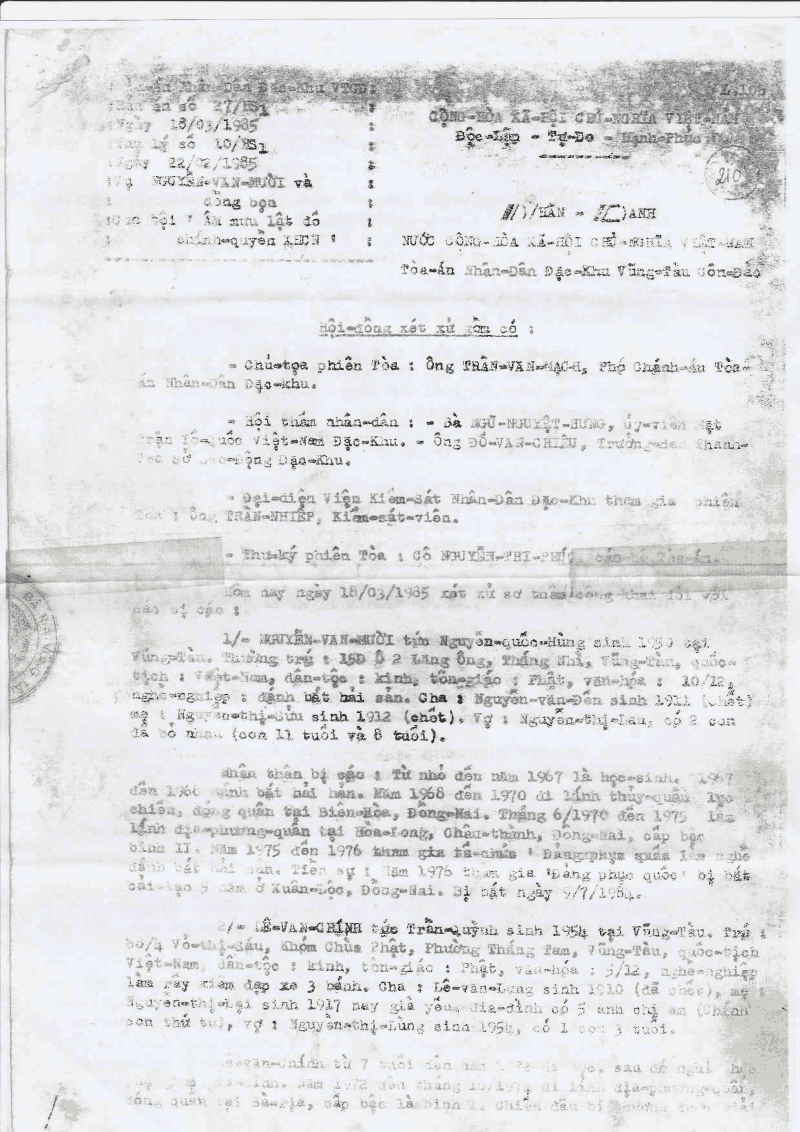 Nhân Dân Đặc-Khu VTCĐ:
án số 27/HS1
Ngày 18/03/1985
lý số 10/HS1
Ngày 22/02/1985
:Vụ NGUYỄN-VĂN-MƯỜI và
: đồng bọn
tội ' Âm mưu lật đổ :
chính-quyền XHCN ' :
CỘNG-HÒA XÃ-HỘI CHỦ-NGHĨA VIỆT-NAM
Độc-Lập - Tự-Do - Hạnh-Phúc
210
NHÂN - DANH
NƯỚC CỘNG-HÒA XÃ-HỘI CHỦ-NGHĨA VIỆT-NAM
Tòa-án Nhân-Dân Đặc-Khu Vũng-Tàu Côn-Đảo
Hội-đồng xét xử gồm có :
- Chủ-tọa phiên Tòa : Ông TRẦN-VĂN-HẠCH, Phó Chánh-án Tòa-
án Nhân-Dân Đặc-khu.
- Hội thẩm nhân-dân : - Bà NGŨ-NGUYỆT-HƯNG, Ủy-viên Mặt
trận Tổ-Quốc Việt-Nam Đặc-Khu. - Ông ĐỖ-VĂN-CHIÊU, Trưởng-ban Thanh-
Tra Sở Lao-Động Đặc-Khu.
- Đại-diện Viện Kiểm-Sát Nhân-Dân Đặc-Khu tham gia phiên
Tòa : Ông TRẦN-NHIẾP, Kiểm-sát-viên.
- Thư-ký phiên Tòa : Cô NGUYỄN-THỊ-PHÚC, cán-bộ Tòa-án.
Hôm nay ngày 18/03/1985 xét xử sơ thẩm công khai đối với
các bị cáo :
BÀ RỊA VŨNG
1/- NGUYỄN-VĂN-MƯỜI tức Nguyễn-quốc-Hùng sinh 1950 tại
Vũng-Tàu. Thường trú : 15D Ô 2 Lăng Ông, Thắng Nhì, Vũng-Tàu, quốc-
tịch : Việt-Nam, dân-tộc : kinh, tôn-giáo : Phật, văn-hóa : 10/12,
nghề-nghiệp : đánh bắt hải sản. Cha : Nguyễn-văn-Đền sinh 1911 (chết)
mẹ : Nguyễn-thị-Sửu sinh 1912 (chết). Vợ : Nguyễn-thị-Lan, có 2 con
đã bỏ nhau (con 11 tuổi và 8 tuổi).
Nhân thân bị cáo : Từ nhỏ đến năm 1967 là học-sinh. 1967
đến 1968 đánh bắt hải hản. Năm 1968 đến 1970 đi lính thủy-quân lục
chiến, đóng quân tại Biên-Hòa, Đồng-Nai. Tháng 6/1970 đến 1975 làm
lính địa-phương-quân tại Hòa-Long, Châu-thành, Đồng-Nai, cấp bậc
binh II. Năm 1975 đến 1976 tham gia tổ-chức ' Đảng phục quốc làm nghề
đánh bắt hải sản. Tiền sự : Năm 1976 tham gia 'Đảng phục quốc' bị bắt
cải-tạo 5 năm ở Xuân-Lộc, Đồng-Nai. Bị bắt ngày 9/7/1984.
2/- LÊ-VĂN-CHÍNH tức Trần-Quỳnh sinh 1954 tại Vũng-Tàu. Trú :
Võ-thị-Sáu, Khóm Chùa Phật, Phường Thắng Tam, Vũng-Tàu, quốc-tịch
Việt-Nam, dân-tộc : kinh, tôn-giáo : Phật, văn-hóa : 5/12, nghề-nghiệp
làm rẫy kiêm đạp xe 3 bánh. Cha : Lê-văn-Lung sinh 1910 (đã chết), mẹ :
Nguyễn-thị-Lại sinh 1917 nay già yếu, gia-đình có 5 anh chị em (Chính
con thứ tư), vợ : Nguyễn-thị-Lùng sinh 1954, có 1 con 3 tuổi.
Lê-văn-Chính từ 7 tuổi đến năm 1972 đi học, sau đó nghỉ học
Năm 1972 đến tháng 10/1974 đi lính địa-phương-quân,
đóng quân tại Bà-Rịa, cấp bậc là binh I. Chiến đấu bị thương